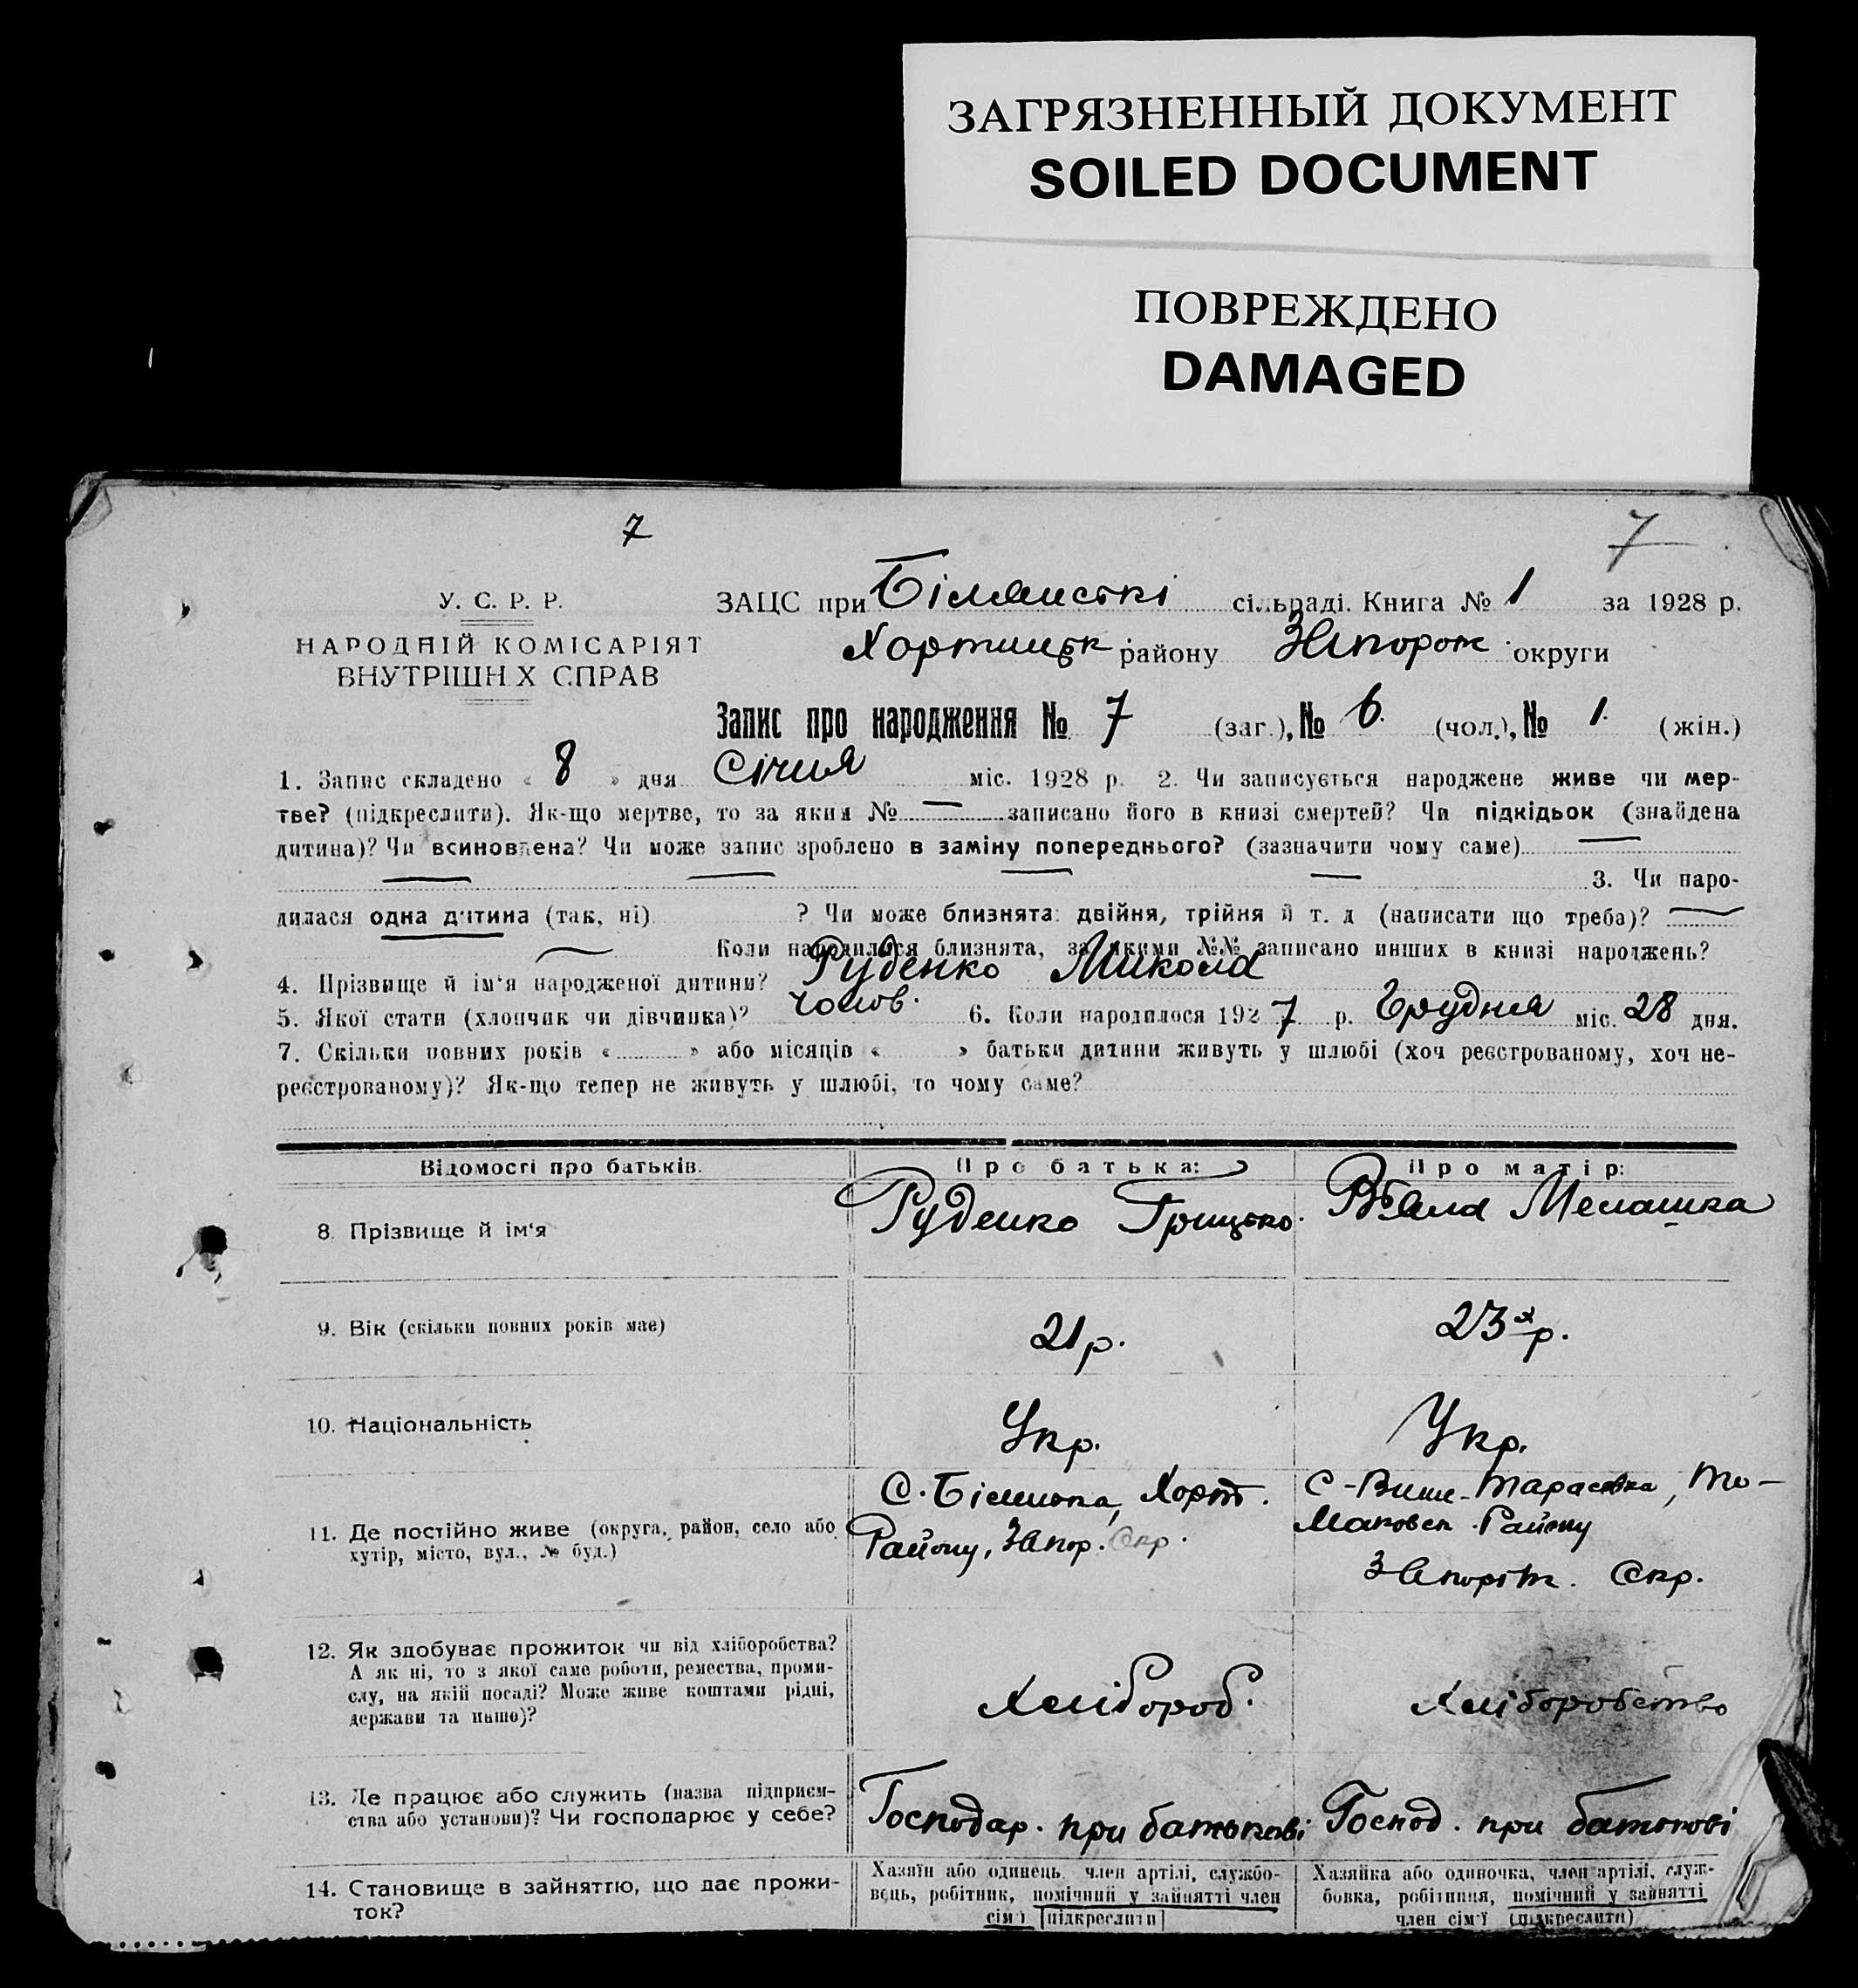 ЗАГРЯЗНЕННЫЙ ДОКУМЕНТ
SOILED DOCUMENT
ПОВРЕЖДЕНО
DAMAGED
7 7
У. С. Р. Р.
НАРОДНІЙ КОМІСАРІЯТ
ВНУТРІШН Х СПРАВ
ЗАЦС при Біленські сільраді. Книга № 1 за 1928 р.
Хортицьк району Запорож округи
Запис про народження № 7 (заг.), № 6. (чол.), № 1. (жін.)
1. Запис складено « 8 » дня Січня міс. 1928 р. 2. Чи записується народжене живе чи мер-
тве? (підкреслити). Як-що мертве, то за яким № — записано його в книзі смертей? Чи підкідьок (знайдена
дитина)? Чи всиновлена? Чи може запис зроблено в заміну попереднього? (зазначити чому саме) —
— — — — 3. Чи наро-
дилася одна дитина (так, ні) ? Чи може близнята: двійня, трійня й т. д (написати що треба)? —
— Коли народилися близнята, за якими №№ записано инших в книзі народжень?
4. Прізвище й ім'я народженої дитини? Руденко Микола
5. Якої стати (хлопчик чи дівчинка)? чолов. 6. Коли народилося 1927 р. Грудня міс. 28 дня.
7. Скільки повних років « » або місяців « » батьки дитини живуть у шлюбі (хоч реєстрованому, хоч не-
реєстрованому)? Як-що тепер не живуть у шлюбі, то чому саме?
Відомості про батьків. Про батька: Про матір:
8. Прізвище й ім'я Руденко Грицько. Вʼяла Мелашка
9. Вік (скільки повних років має) 21 р. 23 х р.
10. Національність Укр. Укр.
11. Де постійно живе (округа, район, село або
хутір, місто, вул., № буд.)
С. Біленька, Хорт.
Району, Запор. Окр.
С-Вище-Тарасовка, То-
маковсь. Району
Запоріж. Окр.
12. Як здобуває прожиток чи від хліборобства?
А як ні, то з якої саме роботи, ремества, проми-
слу, на якій посаді? Може живе коштами рідні,
держави та иншо)?
Хлібороб. Хліборобство
13. Де працює або служить (назва підприєм-
ства або установи)? Чи господарює у себе?
Господар. при батькові Господ. при батькові
14. Становище в зайняттю, що дає прожи-
ток?
Хазяїн або одинець, член артілі, службо-
вець, робітник, помічний у зайнятті член
сім'ї [підкреслити]
Хазяйка або одиночка, член артілі, служ-
бовка, робітниця, помічний у зайнятті
член сім'ї (підкреслити)